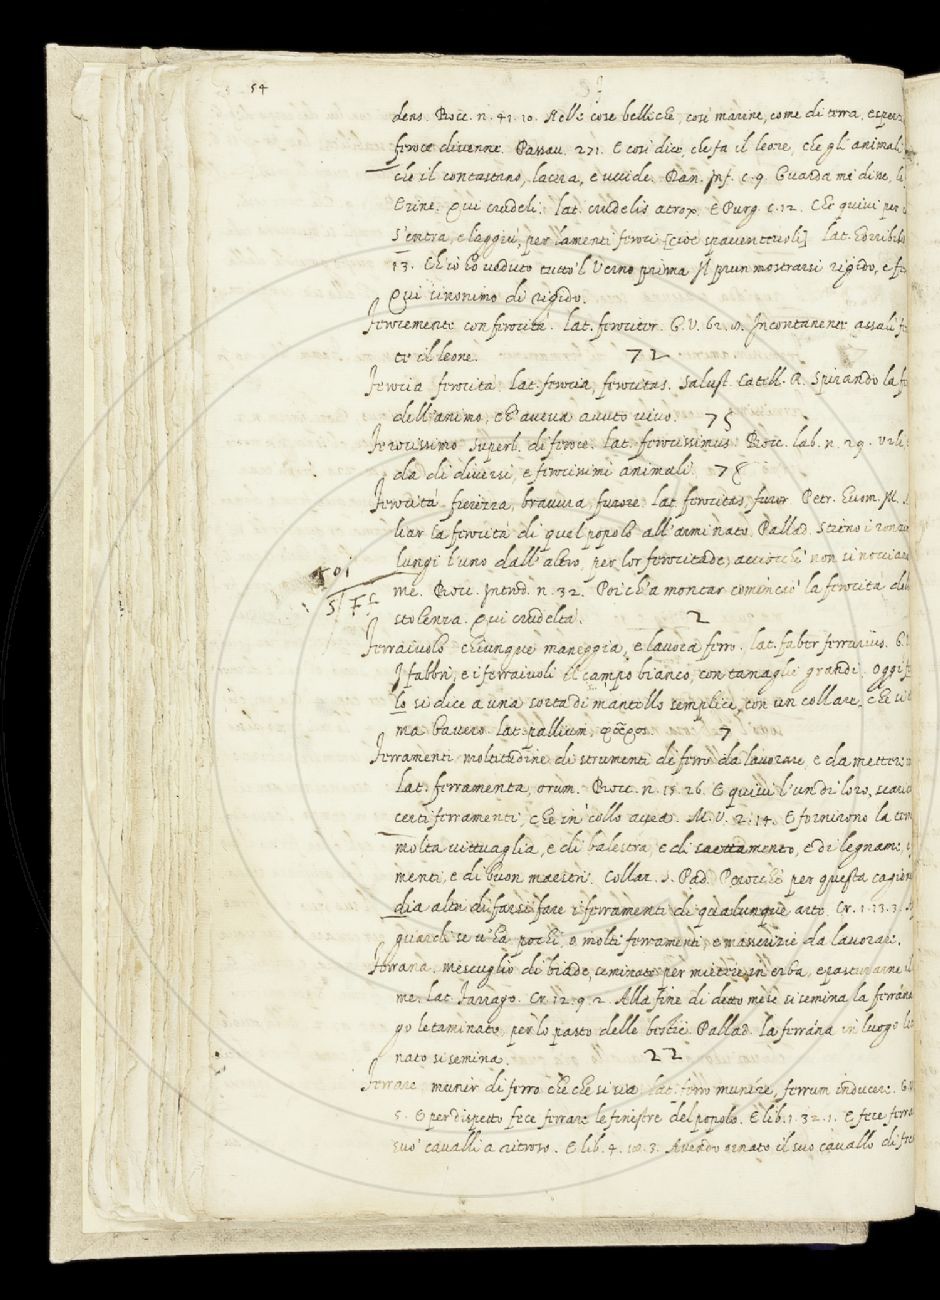 54
dens. Bocc. n. 41. 10. Nelle cose belliche, così marine, come di terra, esper
feroce divenne. Passau. 271. E così dice, che fa il leone, che gli animali
che il contastano, lacera, e uccide. Dan. Inf. c. 9. Guarda me dine, le
Erine. Qui crudeli. lat. crudelis atrox. E Purg. c. 12. Che quivi per
S'entra, e laggiù per lamenti feroci [cioè spaventevoli] Lat. horribilis
13. Ch'io ho veduto tutto'l verno prima Il prun mostrarsi rigido, e fe
Qui sinonimo di rigido.
Ferocemente con ferocità. Lat. ferociter. G. V. 62. Incontanente assalì fe
te il leone. 72
Ferocia ferocità. Lat. ferocia, ferocitas. Salust. Catell. R. Spirando la fe
dell'animo, ch'aveva avuto vivo. 75
Ferocissimo Superl. di feroce. Lat. ferocissimus. Bocc. lab. n. 29.
da di diversi, e ferocissimi animali. 78
Ferocità fierezza, bravura, furore. Lat. ferocitas, furor. Petr. Huom. Ill.
liar la ferocità di quel popolo all'arminato. Pallad.
lungi l'uno dall'altro, per lor ferocitade, acciocchè non si nocciano
me. Bocc. Introd. n. 32. Poichè a montar cominciò la ferocità della
stolenza. Qui crudeltà. 2
Ferraivolo chiunque maneggia, e lavora ferro. Lat. faber ferrarius. G.
I fabbri, e i ferraivoli il campo bianco, con tanaglie grandi. Oggi fe
lo si dice a una sorta di mantello semplice, con un collare, che si
ma bavero. Lat. pallium, 7
Ferramenti moltitudine di strumenti di ferro da lavorare, e da mettere
Lat. ferramenta, orum. Bocc. n. 15. 26. E quivi l'un di loro, scarico
certi ferramenti, che in collo avea. M. V. 2. 14. E fornirono la terra
molta vittuaglia, e di balestra, e di saettamento, e di legname,
menti, e di buon maestri. Collaz. S. Pad. Perocchè per questa cagione
dia altri di farsi fare i ferramenti di qualunque arte. Cr. 1. 13. 3.
guardi se v'ha pochi, o molti ferramenti, e masserizie da lavorare.
Ferrana, mescuglio di biade, seminato per mietere in erba, e pasturarne il
me. Lat. farrago. Cr. 12. 9. 2. Alla fine di detto mese si semina la ferrána
go letaminato, per lo pasto delle bestie. Pallad. la ferrána in luogo le
nato si semina. 22
Ferrare munir di ferro che che si sia. Lat. ferro munire, ferrum inducere. G.
5. E per dispetto fece ferrare le finestre del popolo. E lib. 1. 32. 1. E fece ferra
suo' cavalli a ritroso. E lib. 4. 18. 3. Avendo ornato il suo cavallo di fre